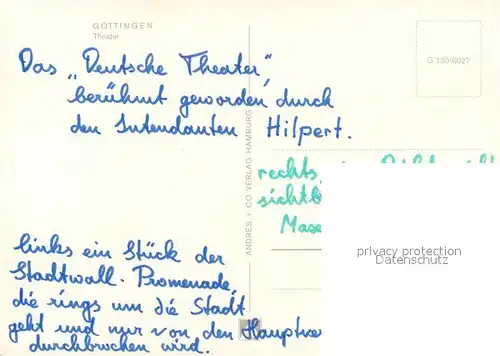 GÖTTINGEN
Theater
G 130/6027
Das „Deutsche Theater",
berühmt geworden durch
den Intendanten Hilpert.
ANDRES + CO VERLAG HAMBURG
rechts
links ein Stück der
Stadtwall-Promenade,
die rings um die Stadt
geht und nur von den
durchbrochen wird.
privacy protection
Datenschutz